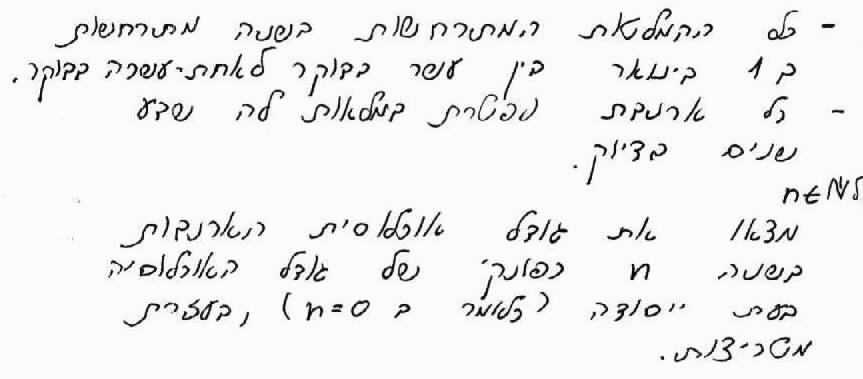 - כל ההמלטות המתרחשות בשנה מתרחשות
ב 1 בינואר בין עשר בבוקר לאחת-עשרה בבוקר.
- כל ארנבת נפטרת במלאות לה שבע
שנים בדיוק.
לn∈ℕ
מצאו את גודל אוכלוסית הארנבות
בשנה n כפונק' של גודל האוכלוסיה
בעת ייסודה (כלומר ב n=0), בעזרת
מטריצות.